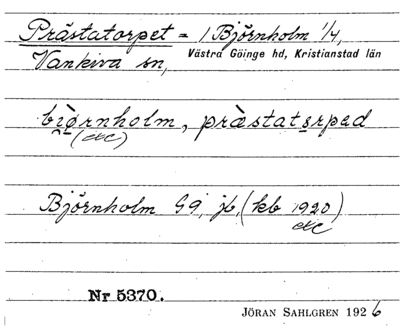 Prästatorpet = / Björnholm 1/4,
Vankiva sn, Västra Göinge hd, Kristianstad län
biø̀rnholm, præ̀statɛrpəd
Björnholm G9, jb, (kb 1920)
Nr 5370.
JÖRAN SAHLGREN 1926